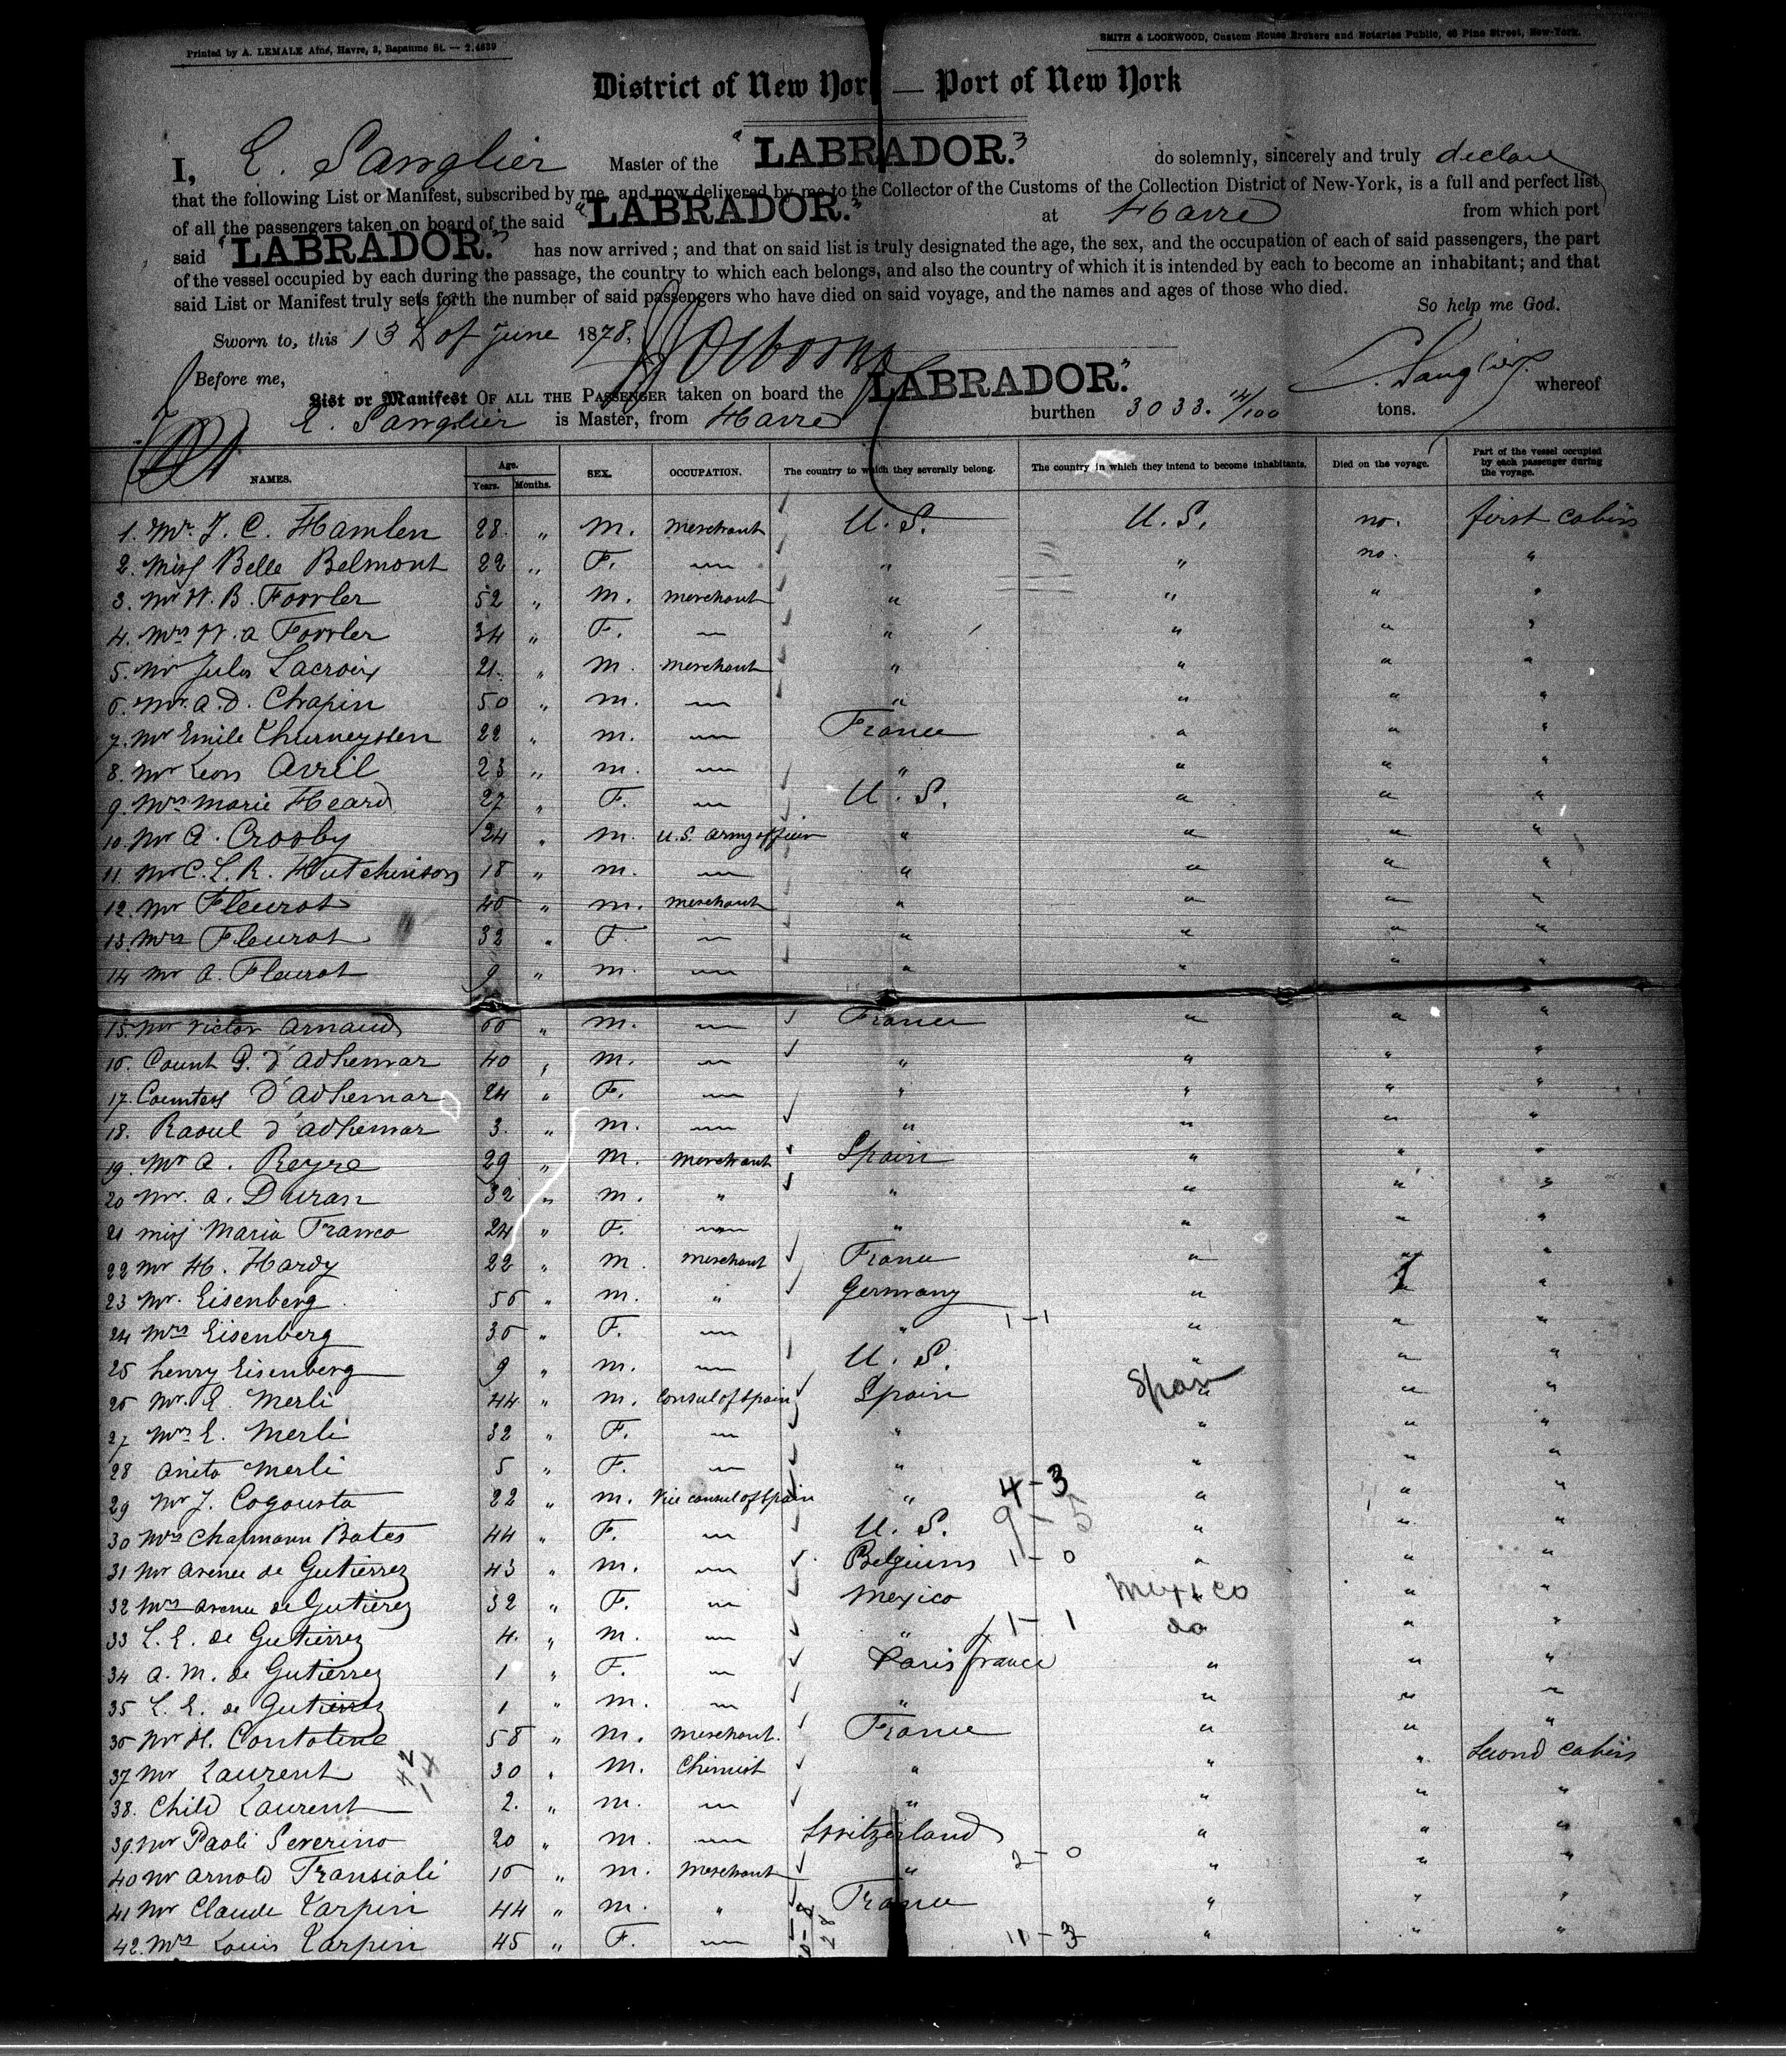 Printed by A. LEMALE Aîné, Havre, 3, Bapaume St. — 2.4639
SMITH & LOCKWOOD, Custom House Brokers and Notaries Public, 48 Pine Street, New-York.
District of New York — Port of New York
I, E. Sanglier Master of the "LABRADOR." do solemnly, sincerely and truly declare
that the following List or Manifest, subscribed by me, and now delivered by me to the Collector of the Customs of the Collection District of New-York, is a full and perfect list
of all the passengers taken on board of the said "LABRADOR." at Havre from which port
said "LABRADOR." has now arrived; and that on said list is truly designated the age, the sex, and the occupation of each of said passengers, the part
of the vessel occupied by each during the passage, the country to which each belongs, and also the country of which it is intended by each to become an inhabitant; and that
said List or Manifest truly sets forth the number of said passengers who have died on said voyage, and the names and ages of those who died.
So help me God.
Sworn to, this 13 of June 1878,
E. Sanglier
Before me,
List or Manifest OF ALL THE PASSENGER taken on board the "LABRADOR." whereof
E. Sanglier is Master, from Havre burthen 3033. 14/100 tons.
NAMES. Age. Years. Months. SEX. OCCUPATION. The country to which they severally belong. The country in which they intend to become inhabitants. Died on the voyage. Part of the vessel occupied by each passenger during the voyage.
1. Mr. J. C. Hamlen 28 " M. Merchant U. S. U. S. no. first cabin
2. Miss Belle Belmont 22 " F. — " " no. "
3. Mr W. B. Fowler 52 " M. Merchant " " " "
4. Mrs W. A Fowler 34 " F. — " " " "
5. Mr Jules Lacroix 21 " M. Merchant " " " "
6. Mr. A. D. Chapin 50 " M. — " " " "
7. Mr Emile Thurneyssen 22 " M. — France " " "
8. Mr Leon Avril 23 " M. — " " " "
9. Mrs Marie Heard 27 " F. — U. S. " " "
10. Mr A. Crosby 24 " M. U.S. Army officer " " " "
11. Mr C. L. R. Hutchinson 18 " M. — " " " "
12. Mr Fleurot 45 " M. Merchant " " " "
13. Mrs Fleurot 32 " F. — " " " "
14 Mr A. Fleurot 9 " M. — " " " "
15. Mr Victor Arnaud " M. — France " " "
16. Count P. d'Adhemar 40 " M. — " " " "
17. Countess D'Adhemar 24 " F. — " " " "
18. Raoul d'Adhemar 3. " M. — " " " "
19. Mr A. Reyre 29 " M. Merchant Spain " " "
20 Mr. A. Duran 32 " M. " " " " "
21 Miss Maria Franco 24 " F. — " " " "
22 Mr H. Hardy 22 " M Merchant France " " "
23 Mr. Eisenberg 56 " M. " Germany " " "
24 Mrs Eisenberg 36 " F. — " 1-1 " " "
25 henry Eisenberg 9 " M. — U. S. " " "
26 Mr. E. Merli 44 " M. Consul of Spain Spain Spain " "
27 Mrs E. Merli 32 " F. — " " " "
28 Anita Merli 5 " F. — " " " "
29 Mr J. Cogousta 22 " M. Vice consul of Spain " 4-3 " " "
30 Mrs Chapmann Bates 44 " F. — U. S. 9-5 " " "
31 Mr Avenue de Gutierrez 43 " M. — Belgium 1-0 " " "
32 Mrs Avenue de Gutierez 32 " F. — Mexico Mexico " "
33 L. E. de Gutierrez 4. " M. — " 1-1 do " "
34 A. M. de Gutierrez 1 " F. — Paris france " " "
35 L. E. de Gutierrez 1 " M. — " " " "
36 Mr H. Contotene 58 " M. Merchant. France " " "
37 Mr Laurent 30 " M. Chimist " " " Second cabin
38. Child Laurent 2. " M. — " " " "
39. Mr Paoli Severino 20 " M. — Switzerland " " "
40 Mr Arnold Fransioli 16 " M. Merchant " 2-0 " " "
41 Mr Claude Tarpin 44 " M. " France " " "
42. Mrs Louis Tarpin 45 " F. — 11-3 " " "